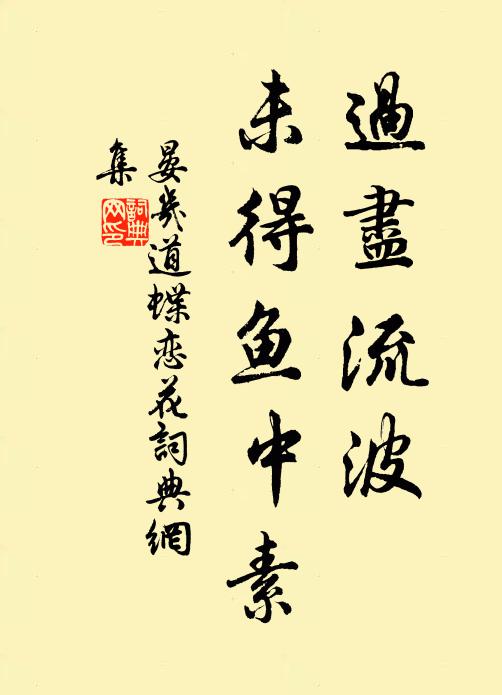 過盡流波
未得鱼中素
晏幾道蝶恋花詞典網
集
詞典
网印